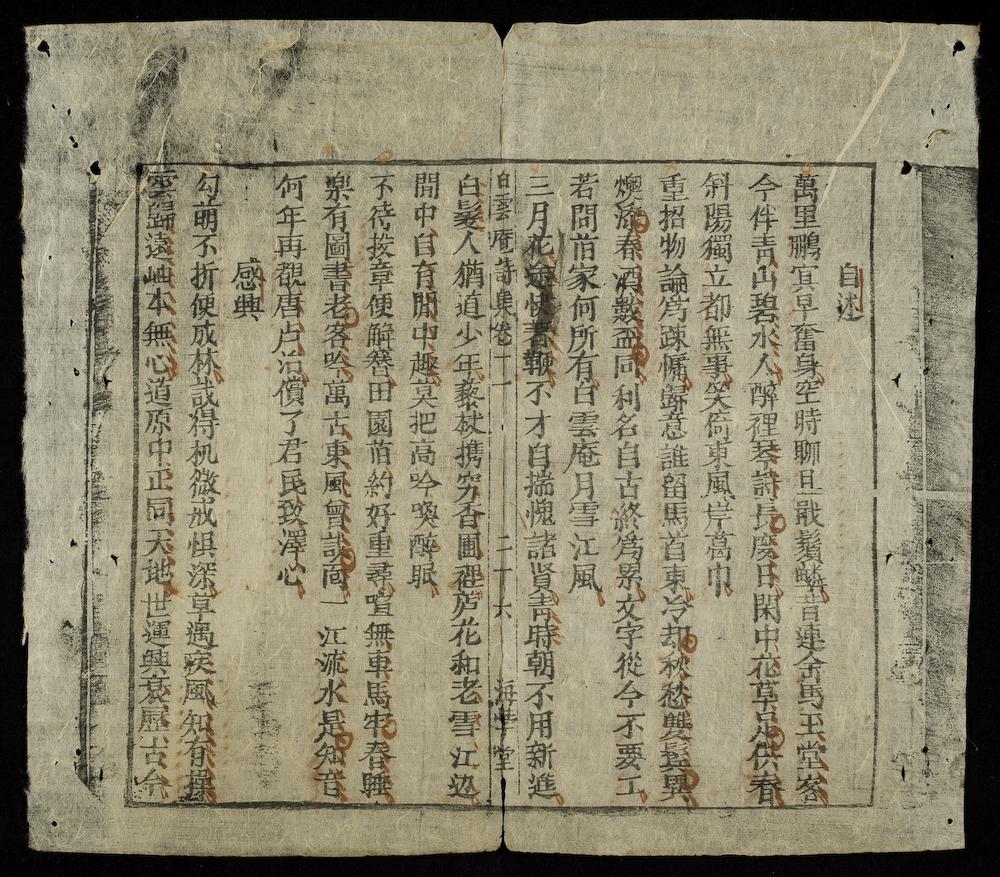 自述
萬里鵬冥早奮身空時聊且戢鬚鱗昔連金馬玉堂客
今伴青山碧水人醉裡琴詩長度日閑中花草足供春
斜陽獨立都無事笑倚東風岸葛巾
重招物論爲疎慵歸意誰留馬首東冷却秋愁雙鬂異
燠添春酒數盃同利名自古終爲累文字從今不要工
若問萡家何所有白雲庵月雪江風
三月花途快著鞭不才自揣愧諸賢青時朝不用新進
白雲庵詩集卷十一 二十六 海學堂
白髮人猶道少年藜杖携穷香圃裡芦花和老雪江边
閒中自有閒中趣莫把高吟喚醉眠
不待投章便解簪田園萡約好重尋喧無車馬牢春睡
楽有圖書老客吟萬古東風曾識面一江流水是知音
何年再覩唐卢治償了君民致澤心
感興
勾萌不折便成林哉得机微戒惧深草遇疾風知有操
雲歸遠岫本無心道原中正同天地世運興衰歷古今